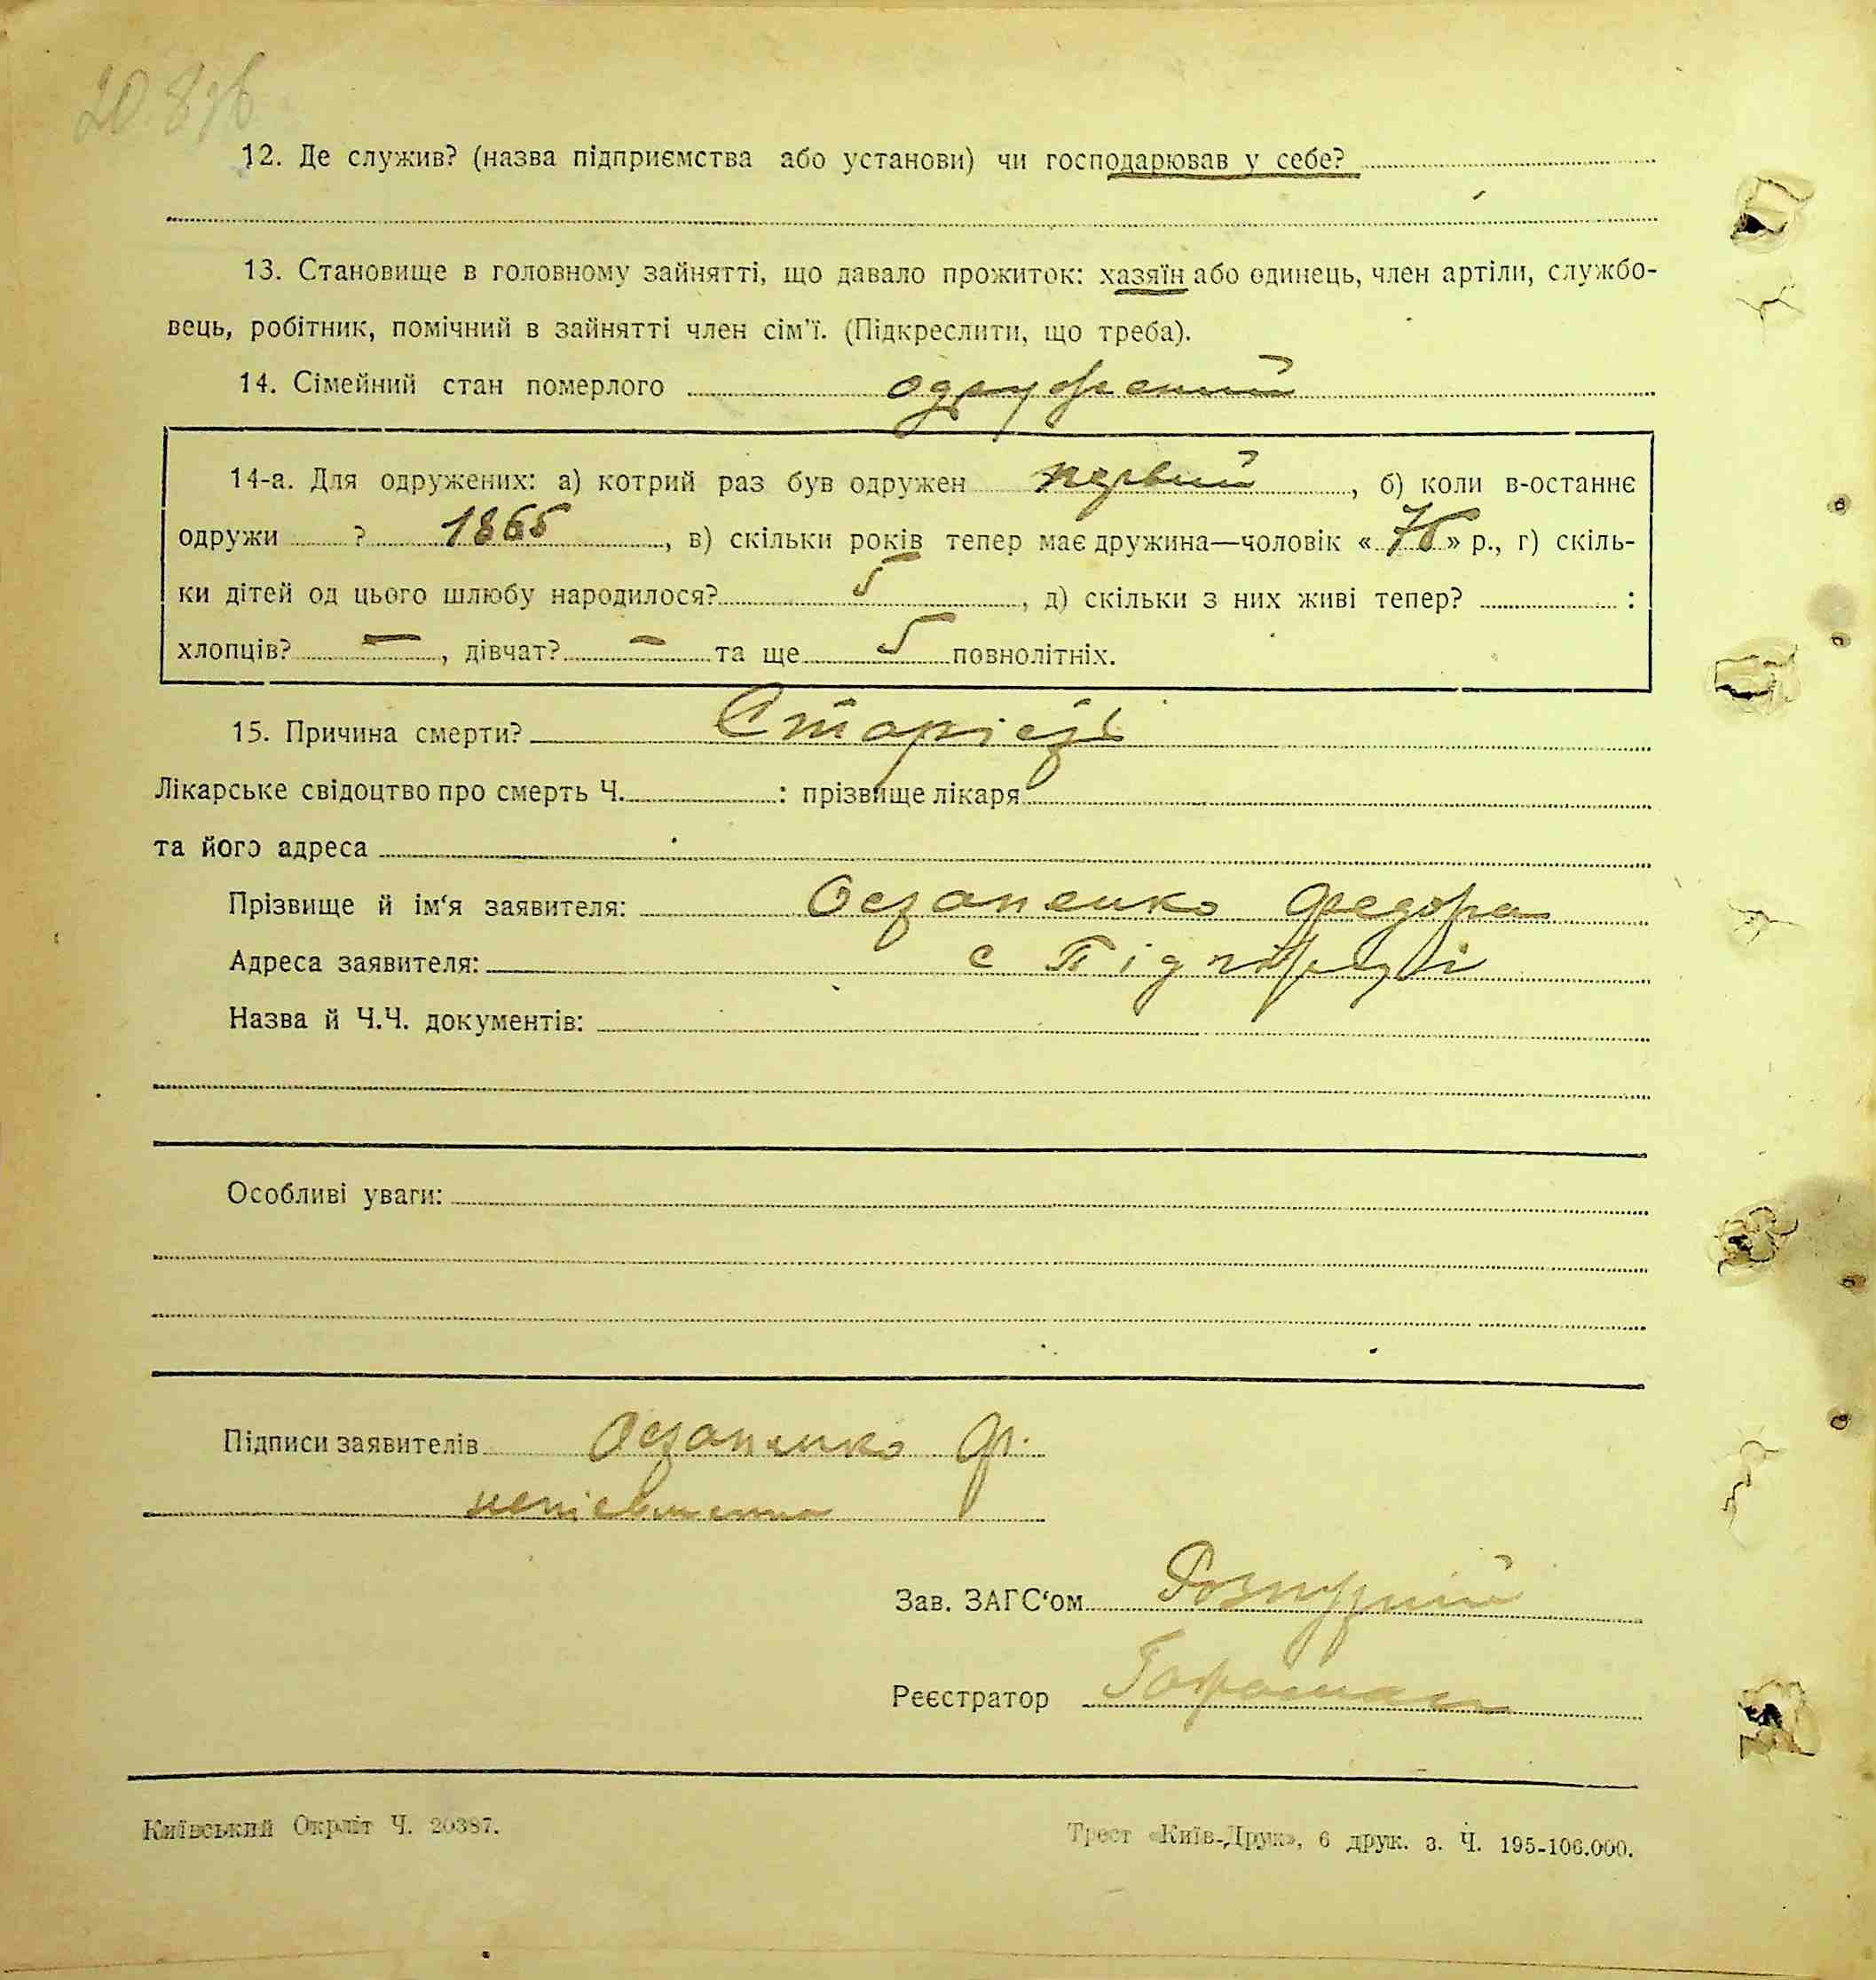 12. Де служив? (назва підприємства або установи) чи господарював у себе?
13. Становище в головному зайнятті, що давало прожиток: хазяїн або одинець, член артіли, службо-
вець, робітник, помічний в зайнятті член сім'ї. (Підкреслити, що треба).
14. Сімейний стан померлого одружений
14-а. Для одружених: а) котрий раз був одружен первий, б) коли в-останнє
одружи ? 1865, в) скільки років тепер має дружина—чоловік « » р., г) скіль-
ки дітей од цього шлюбу народилося? 5, д) скільки з них живі тепер? :
хлопців? —, дівчат? — та ще 5 повнолітніх.
15. Причина смерти? Старість
Лікарське свідоцтво про смерть Ч. : прізвище лікаря
та його адреса
Прізвище й ім'я заявителя: Федора
Адреса заявителя: с Підгірці
Назва й Ч.Ч. документів:
Особливі уваги:
Підписи заявителів Ф.
неписьменна
Зав. ЗАГС'ом
Реєстратор
Київський Окрліт Ч. 20387.
Трест «Київ-Друк», 6 друк. з. Ч. 195-106.000.